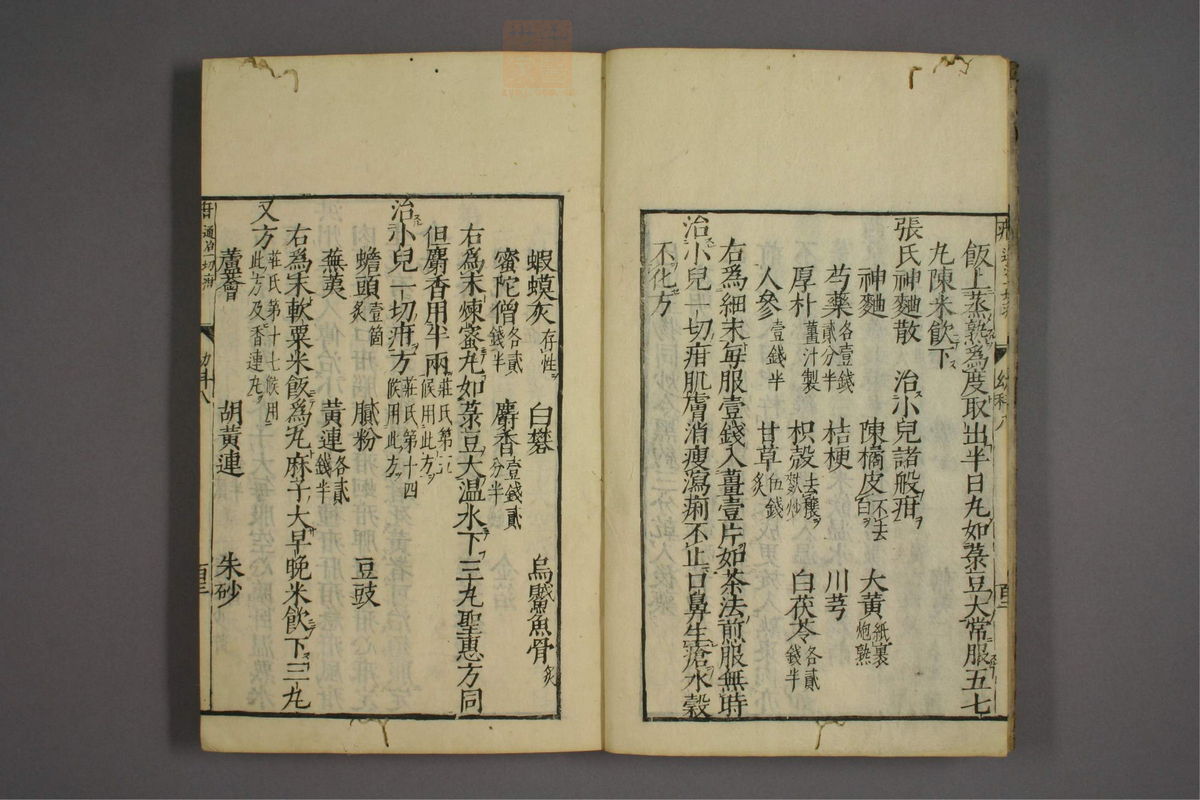 飯上蒸熟為度取出半日丸如菉豆大常服五七
丸陳米飲下
張氏神麯散 治小兒諸般疳
神麯 陳橘皮不去白 大黃紙裹炮熟
芍藥各壹錢貳分半 桔梗 川芎
厚朴薑汁製 枳殼去穰麩炒 白茯苓各貳錢半
人參壹錢半 甘草伍錢炙
右為細末每服壹錢入薑壹片如茶法煎服無時
治小兒一切疳肌膚消瘦瀉痢不止口鼻生瘡水穀
不化方
蝦蟆灰存性 白礬 烏鰂魚骨炙
蜜陀僧各貳錢半 麝香壹錢貳分半
右為末煉蜜丸如菉豆大温水下三丸聖惠方同
但麝香用半兩莊氏第候用此方
治小兒一切疳方莊氏第十四候用此方
蟾頭壹箇炙 膩粉 豆豉
蕪荑 黃連各貳錢半
右為末軟粟米飯為丸麻子大早晚米飲下三丸
又方莊氏第十七候用此方及香連丸
蘆薈 胡黃連 朱砂
疳通治一切疳 幼科八